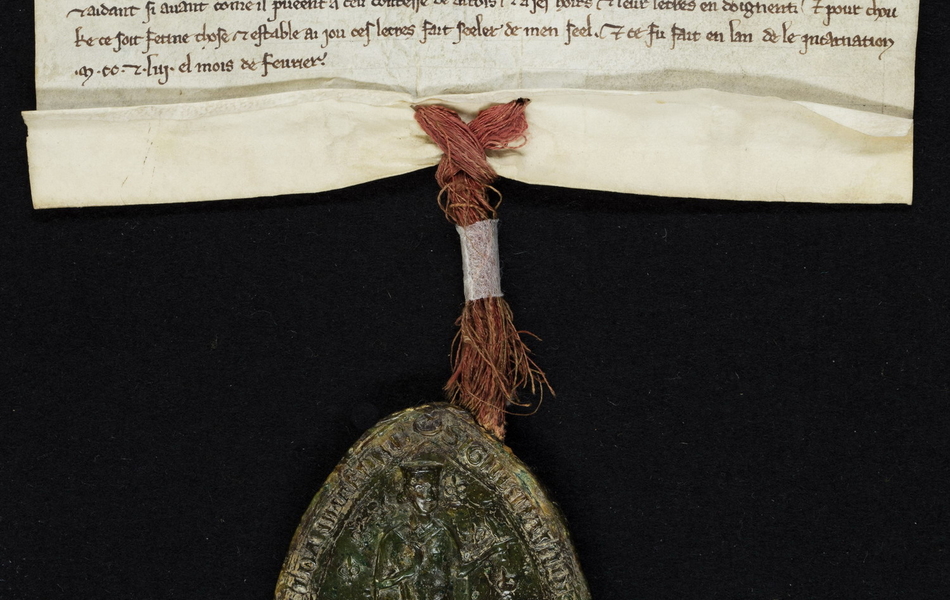 ⁊ aidant si auant come il pueent a ceu contesse de artois / ⁊ a ses hoirs ⁊ leur letres en doignent / ⁊ pour chou
ke ce soit ferme chose ⁊ estable ai jou ces letres fait seeler de men seel. ⁊ ce fu fait en lan de le incarnation
.m. cc. ⁊ .liij. el mois de feurier.